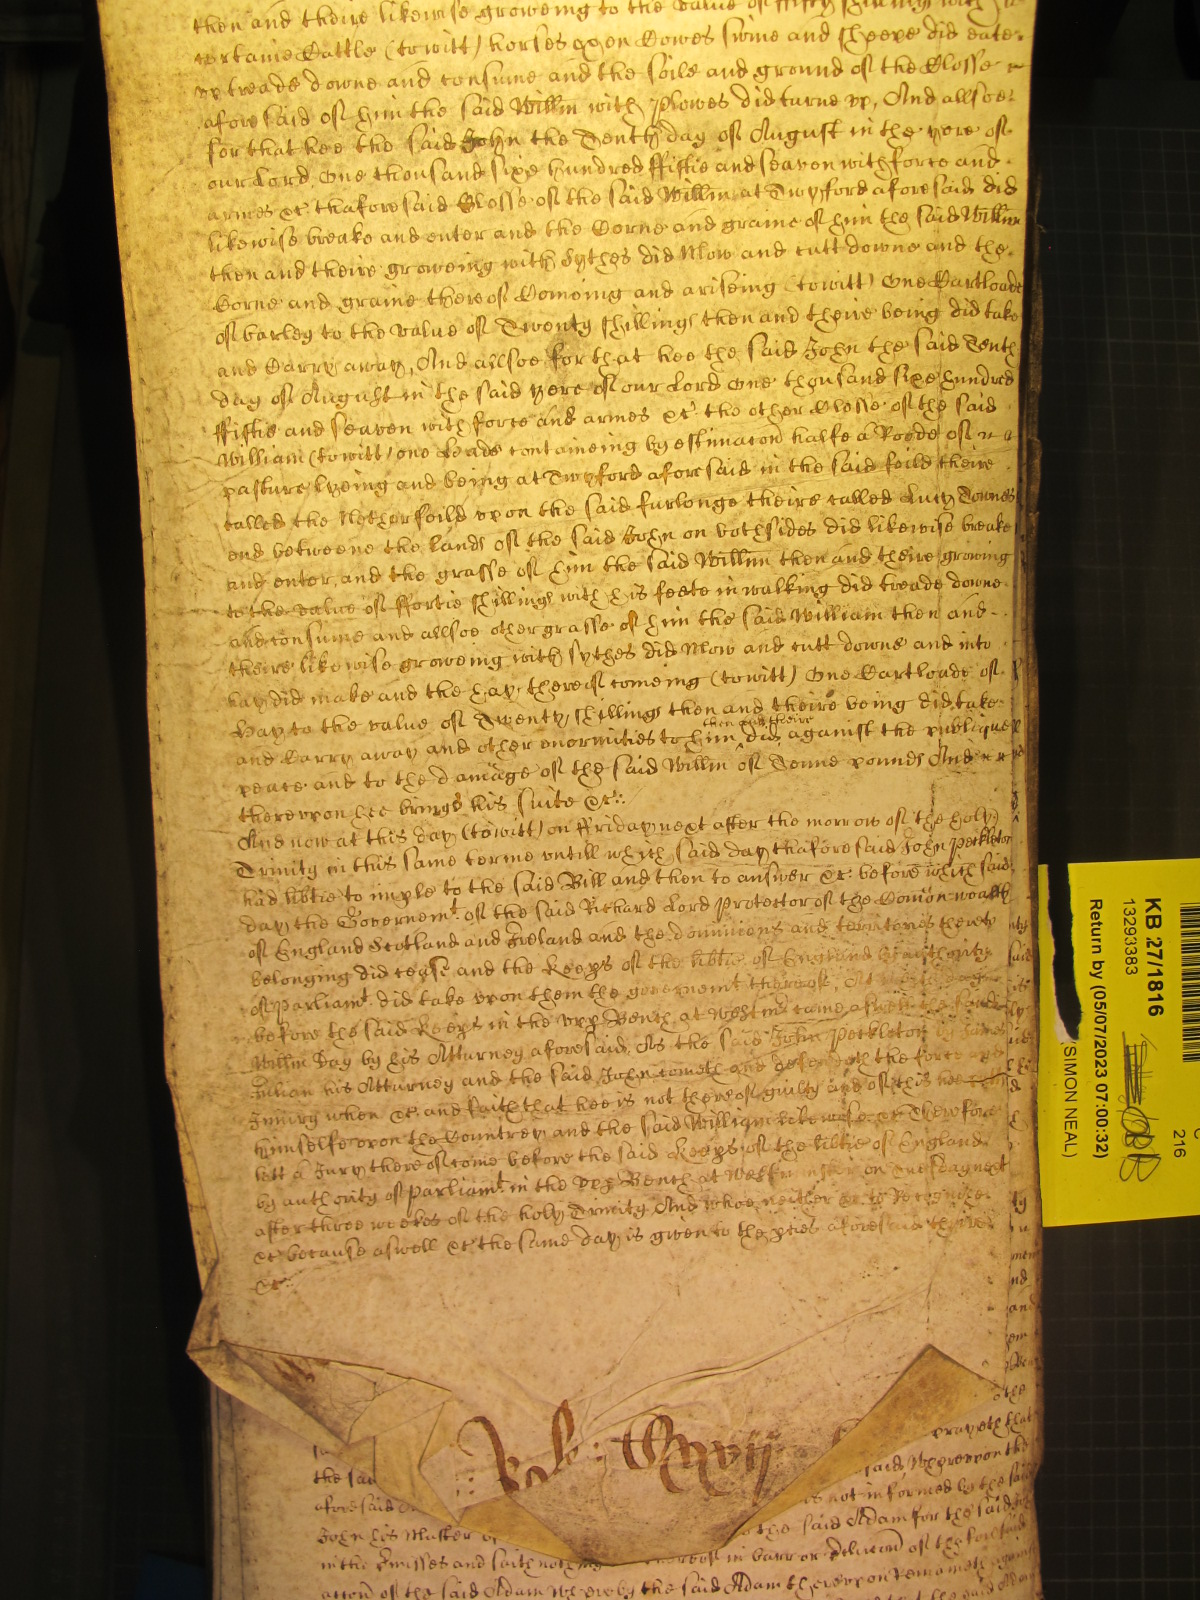 then and theire likewise groweing to the value of fifty shilling with
certaine Cattle (towitt) horses oxen Cowes swine and sheepe did eate
vp treade downe and consume and the soile and ground of the Closse
aforesaid of him the said Willm with Plowes did turne vp, And allsoe
for that hee the said John the Tenth day of August in the yere of
our Lord One thousand sixe hundred ffiftie and seaven with force and
armes &c thaforesaid Closse of the said Willm at Twyfford aforesaid did
likewise breake and enter and the Corne and graine of him the said Willm
then and theire groweing with Sythes did Mow and cutt downe and the
Corne and graine thereof Comeing and ariseing (towitt) One Cartloade
of barley to the value of Twenty shillings then and theire being did take
and Carry away, And allsoe for that hee the said John the said Tenth
day of August in the said yere of our Lord One thousand sixe hundred
ffiftie and seaven with force and armes &c the other Closse of the said
William (towitt) one Leade containeing by estimacon halfe a Roode of
pasture lyeing and being at Twyford aforesaid in the said feild theire
called the Netherfeild vpon the said furlonge theire called Downes
and betweene the lands of the said John on bothsides did likewise breake
and enter, and the grasse of him the said Willm then and theire growing
to the value of ffortie shillings with his feete in walking did treade downe
and consume and allsoe other grasse of him the said William then and
theire likewise groweing with sythes did Mow and cutt downe and into
hay did make and the hay thereof comeing (towitt) One Cartloade of
Hay to the value of Twenty shilling then and theire being did take
and Carry away and other enormities to him then and theire did against the publique
peace and to the damage of the said Willm of Tenne pounds And
therevpon hee brings his suite &c:
And now at this day (towitt) on ffriday next after the morrow of the holy
Trinity in this same terme vntill which said day thaforesaid John Peckleton
had libtie to imple to the said Bill and then to answer &c before which said
day the Governemt. of the said Richard Lord Protector of the Comon wealth
of England Scotland and Ireland and the dominions and territories thereto
belonging did cease and the Keeps of the libtie of England by authority
of Parliamt. did take vpon them the governemt thereof, At
before the said Keeps in the vpp Bench at Westmr came aswell the said
Willm Day by his Atturney aforesaid, As the said John Peckleton by James
Julian his Atturney and the said John cometh and defendeth the force and
Iniury when &c and saith that hee is not thereof guilty and of this hee
himselfe vpon the Countrey and the said William likewise &c Therefore
lett a Jury thereof come before the said Keeps of the libtie of England
by authority of Parliamt. in the vpp Bench at Westminster on next
after three weekes of the holy Trinity, And whoe neither &c to Recognize
&c because aswell &c the same day is given to the pties aforesaid theire
&c:
prayeth that
the said
said, Wherevpon the
aforesaid
is not informed by the said
John his Master
the said Adam for the said
in the pmisses and saith nothing thereof in barr or
accon of the said Adam whereby the said Adam therevpon
KB 27/1816
13293383
Return by (05/07/2023 07:00:32)
(SIMON NEAL)
216